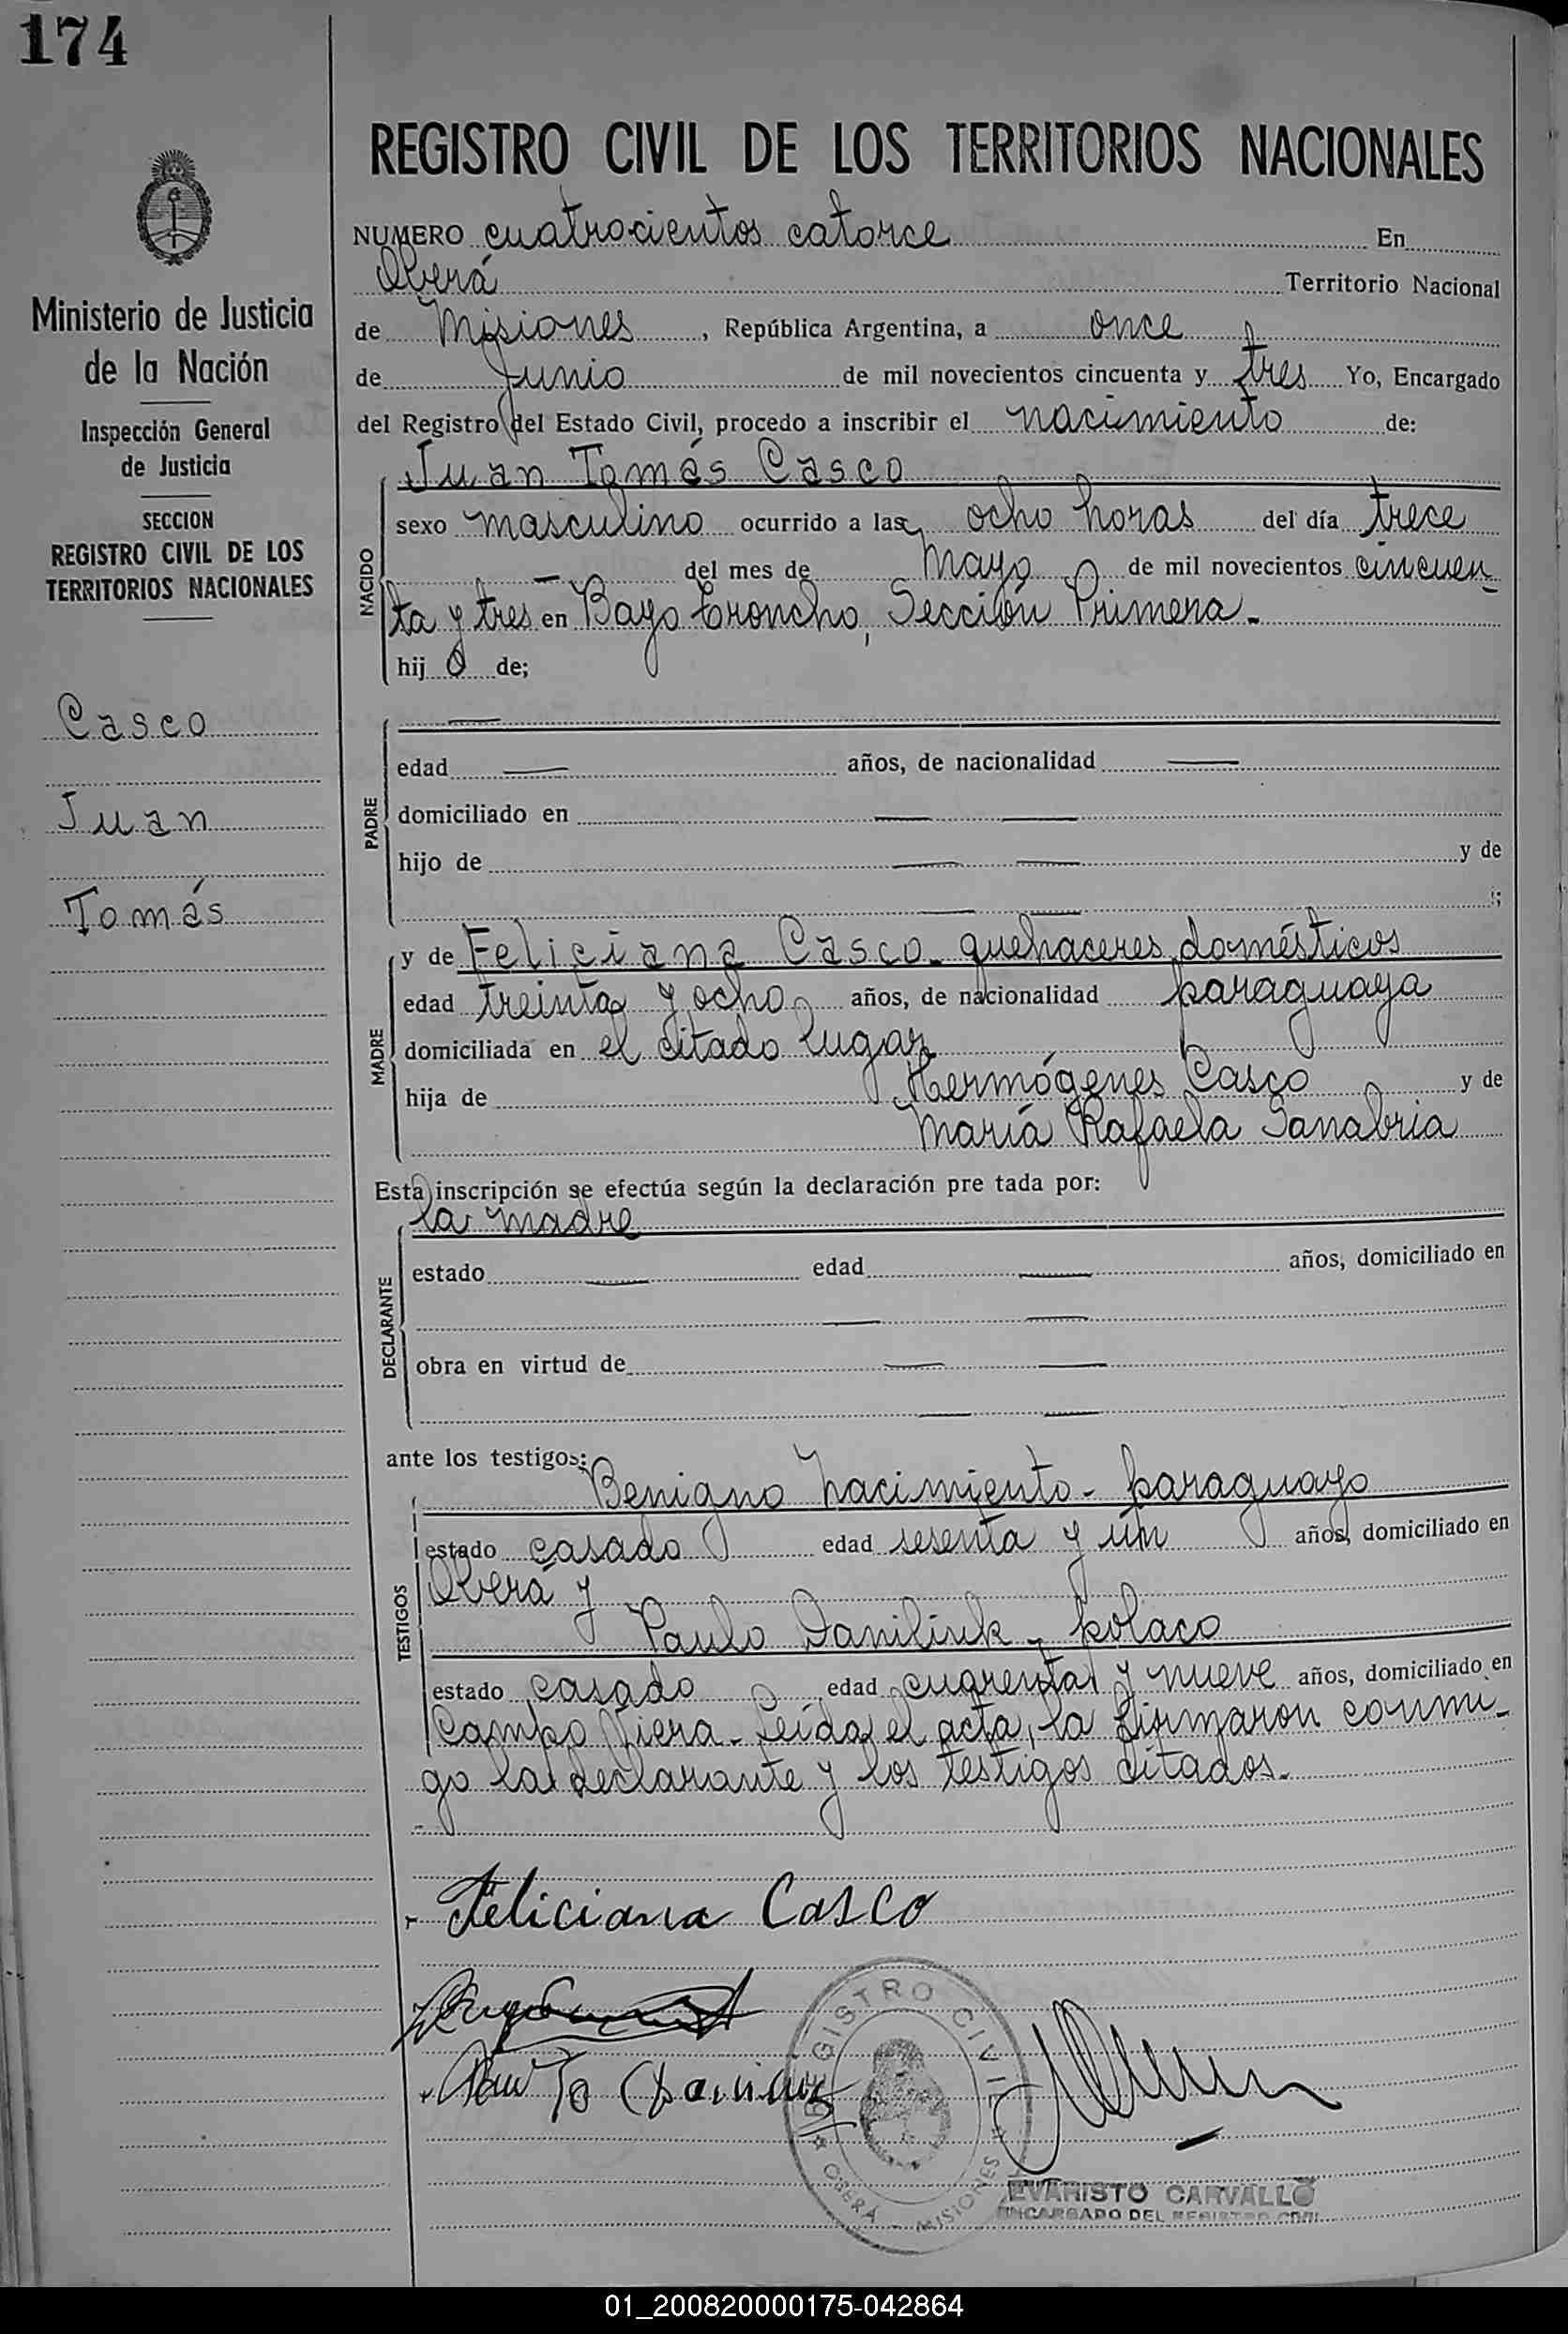 174
REGISTRO CIVIL DE LOS TERRITORIOS NACIONALES
Ministerio de Justicia
de la Nación
Inspección General
de Justicia
SECCION
REGISTRO CIVIL DE LOS
TERRITORIOS NACIONALES
Casco
Juan
Tomás
NUMERO cuatrocientos catorce En
Oberá Territorio Nacional
de Misiones, República Argentina, a once
de Junio de mil novecientos cincuenta y tres Yo, Encargado
del Registro del Estado Civil, procedo a inscribir el nacimiento de:
NACIDO
Juan Tomás Casco
sexo masculino ocurrido a las ocho horas del día trece
— del mes de Mayo de mil novecientos cincuen-
ta y tres en Bayo Troncho, Sección Primera.-
hij o de;
PADRE
—
edad — años, de nacionalidad —
domiciliado en — —
hijo de — — y de
— — ;
MADRE
y de Feliciana Casco - quehaceres domésticos
edad treinta y ocho años, de nacionalidad paraguaya
domiciliada en el citado lugar
hija de Hermógenes Casco y de
María Rafaela Sanabria
Esta inscripción se efectúa según la declaración pre tada por:
DECLARANTE
la madre
estado — edad — años, domiciliado en
— —
obra en virtud de — —
— —
ante los testigos:
TESTIGOS
Benigno Nacimiento - paraguayo
estado casado edad sesenta y un años, domiciliado en
Oberá y
Paulo Daniliuk - polaco
estado casado edad cuarenta y nueve años, domiciliado en
Campo Viera - Leída el acta, la firmaron conmi-
go la declarante y los testigos citados.-
Feliciana Casco
REGISTRO CIVIL
OBERÁ - MISIONES
EVARISTO CARVALLO
ENCARGADO DEL REGISTRO CIVIL
01_200820000175-042864